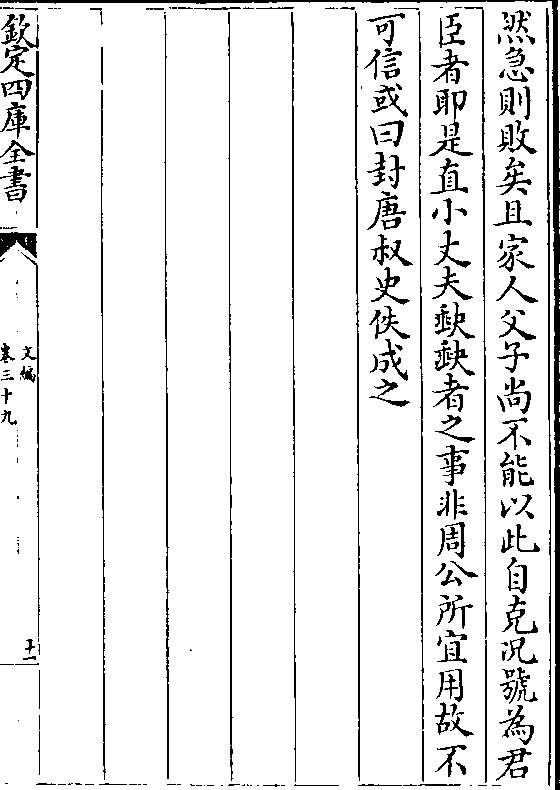 然急則敗矣且家人父子尚不能以此自克况號為君
臣者耶是直小丈夫𡙇𡙇者之事非周公所宜用故不
可信或曰封唐叔史佚成之
欽定四庫全書
文編
卷三十九
十一